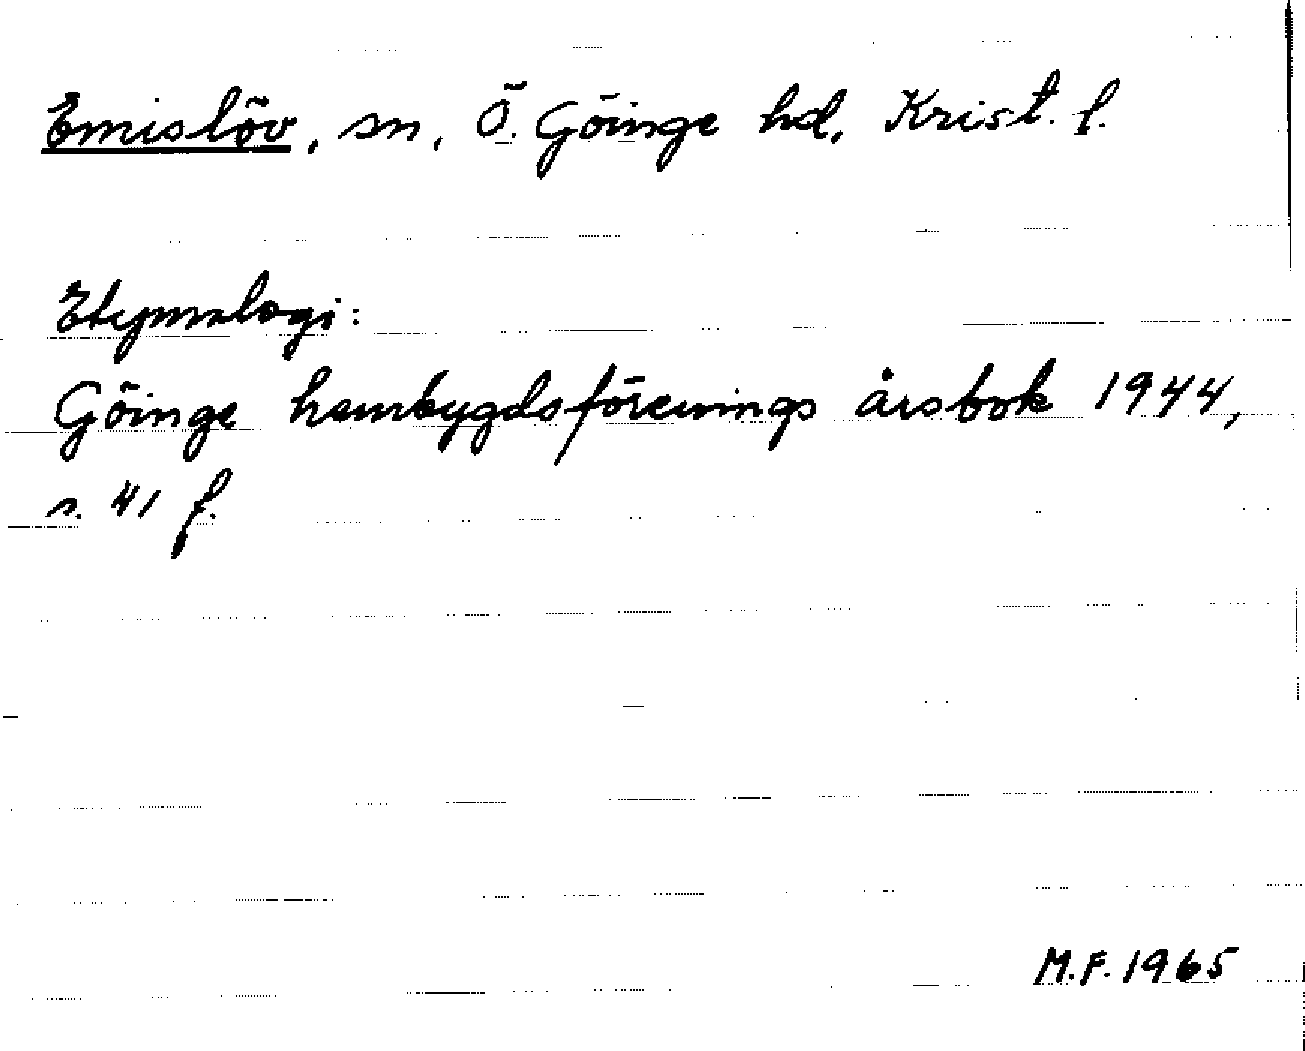 Emislöv, sn, Ö. Göinge hd, Krist. l.
Etymologi:
Göinge hembygdsförenings årsbok 1944,
s. 41 f.
M.F. 1965